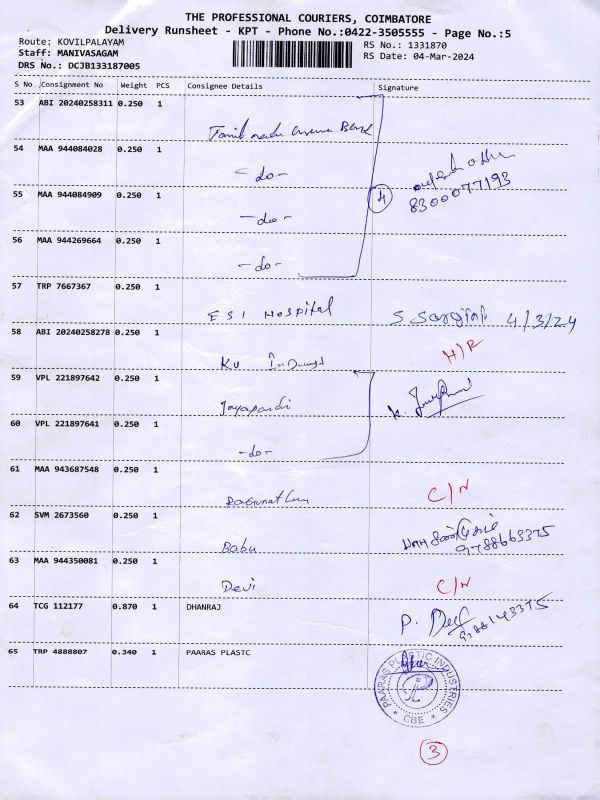 THE PROFESSIONAL COURIERS, COIMBATORE
Delivery Runsheet - KPT - Phone No.:0422-3505555 - Page No.:5
Route: KOVILPALAYAM RS No.: 1331870
Staff: MANIVASAGAM RS Date: 04-Mar-2024
DRS No.: DCJB133187005
S No Consignment No Weight PCS Consignee Details Signature
53 ABI 20240258311 0.250 1
Tamil nadu Bank
54 MAA 944084028 0.250 1
-do-
55 MAA 944084909 0.250 1
-do-
4
8300077193
56 MAA 944269664 0.250 1
-do-
57 TRP 7667367 0.250 1
ESI Hospital 4/3/24
58 ABI 20240258278 0.250 1
H/R
59 VPL 221897642 0.250 1
Jayapandi
60 VPL 221897641 0.250 1
-do-
61 MAA 943687548 0.250 1
C/N
62 SVM 2673560 0.250 1
Babu
9788663375
63 MAA 944350081 0.250 1
Devi C/N
64 TCG 112177 0.870 1 DHANRAJ
65 TRP 4888807 0.340 1 PAARAS PLASTC
PAARAS PLASTIC INDUSTRIES
CBE
3